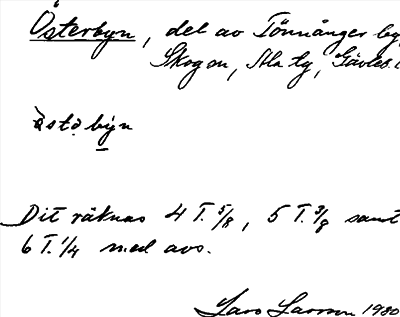 Österbyn, del av Tönnånger by,
Skog sn, Ala tg, Gävleb.
östə byn
Dit räknas 4 T. 5/8, 5 T. 3/8 samt
6 T. 1/4 med avs.
Lars Larsson 1980